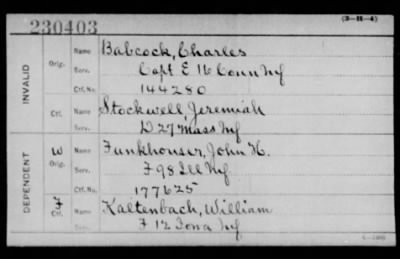 230403
(3-11-4)
INVALID
Orig. Name Babcock, Charles
Serv. Capt E 16 Conn Inf
Ctf. No. 144280
Ctf. Name Stockwell, Jeremiah
Serv. D 27 Mass Inf
DEPENDENT
W Orig. Name Funkhouser, John H.
Serv. F 98 Ill Inf
Ctf. No. 177625
F Ctf. Name Kaltenbach, William
Serv. F 12 Iowa Inf